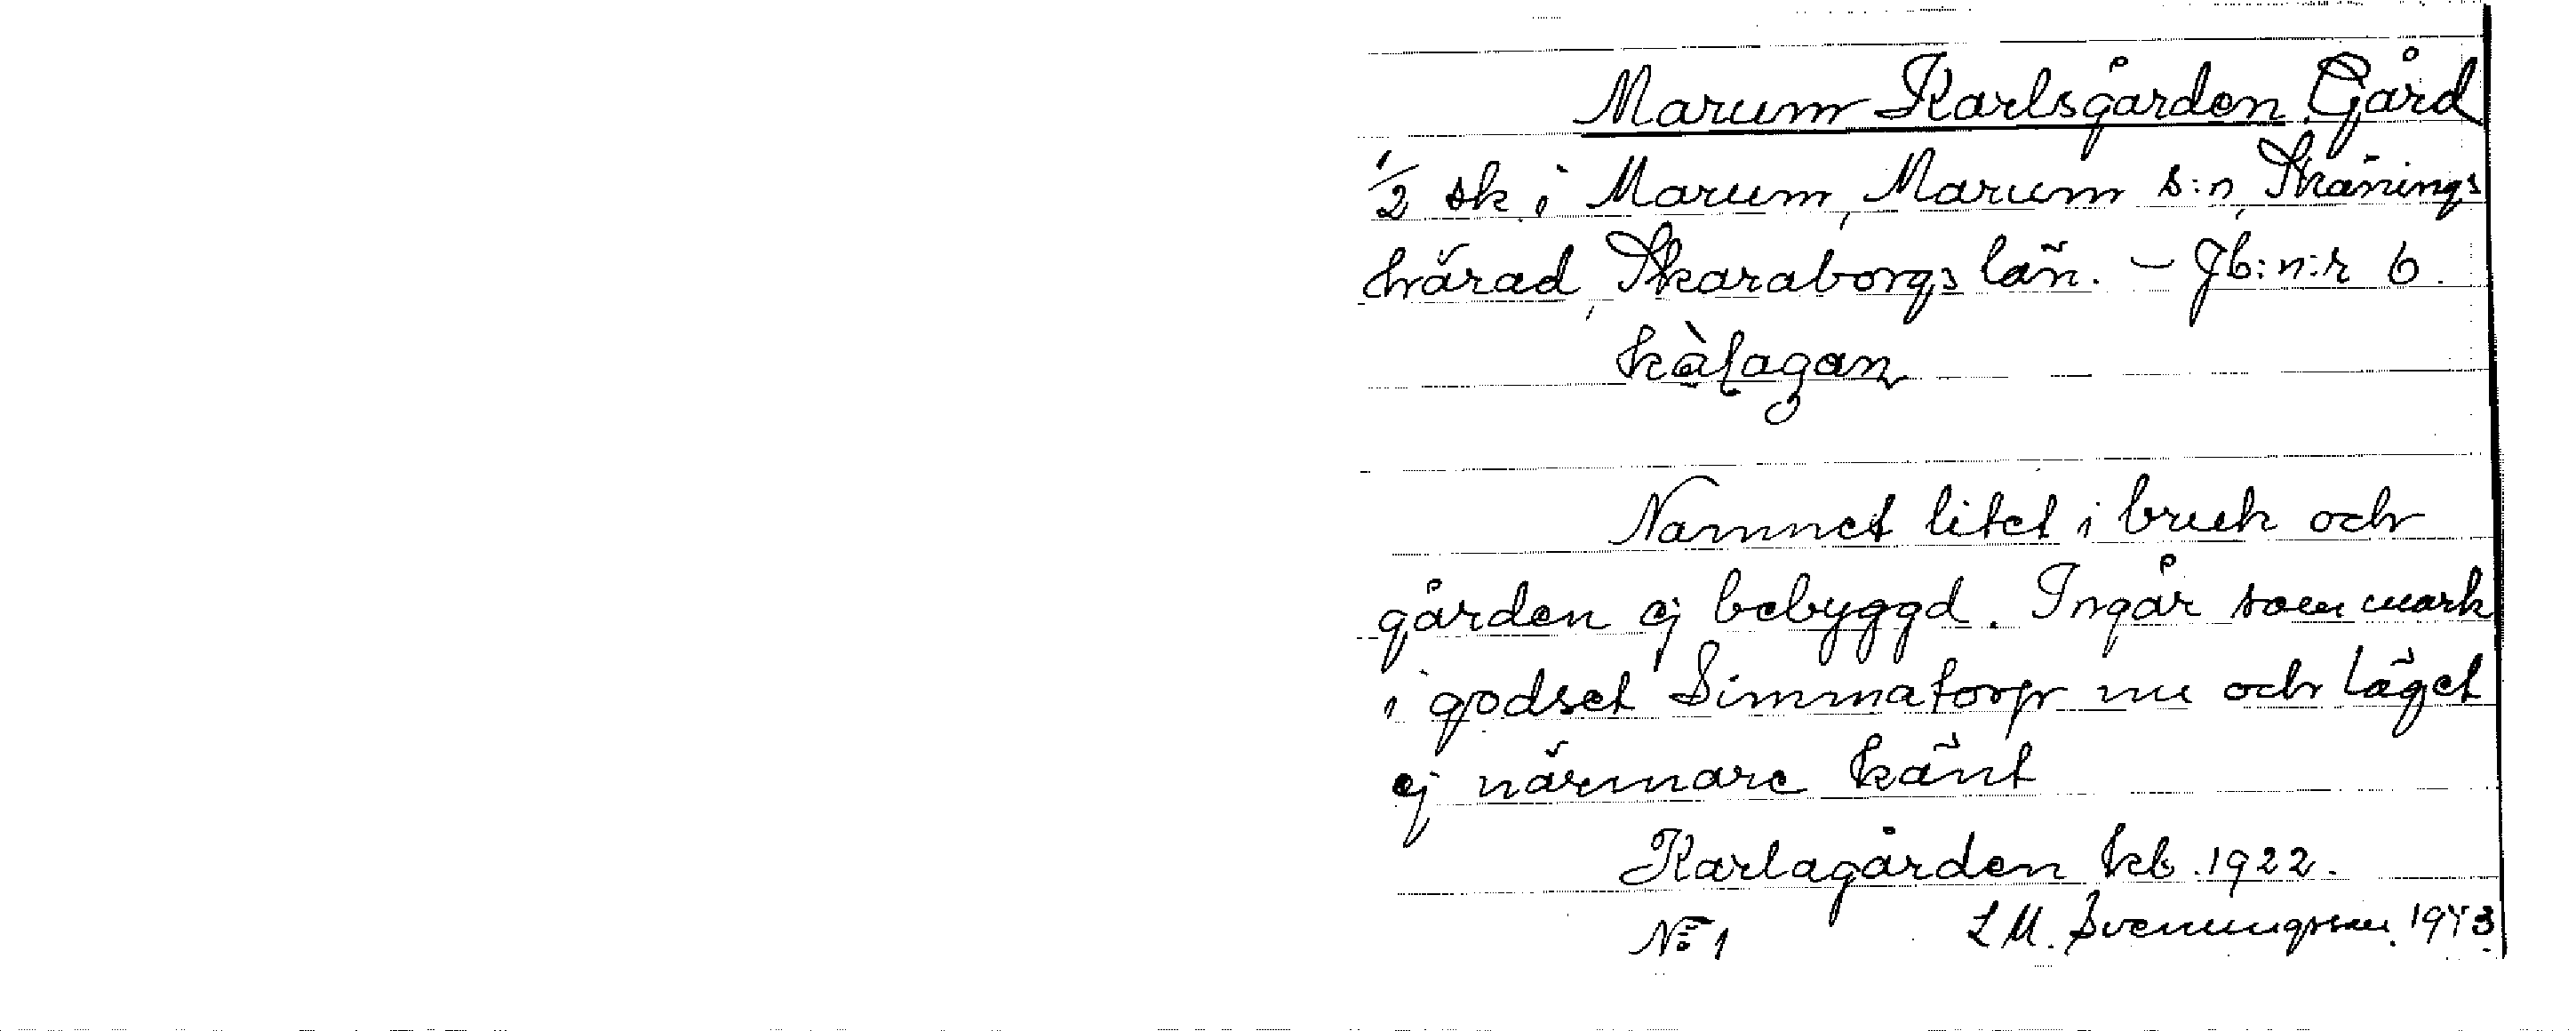 Marum Karlsgården Gård
1/2 sk i Marum, Marum s:n, Skånings
härad, Skaraborgs län. – Jb:n:r 6.
kàlagan
Namnet litet i bruk och
gården ej bebyggd. Ingår som mark
i godset Simmatorp nu och läget
ej närmare känt
Karlagården kb. 1922.
No 1 L M. Svenungsson. 1943